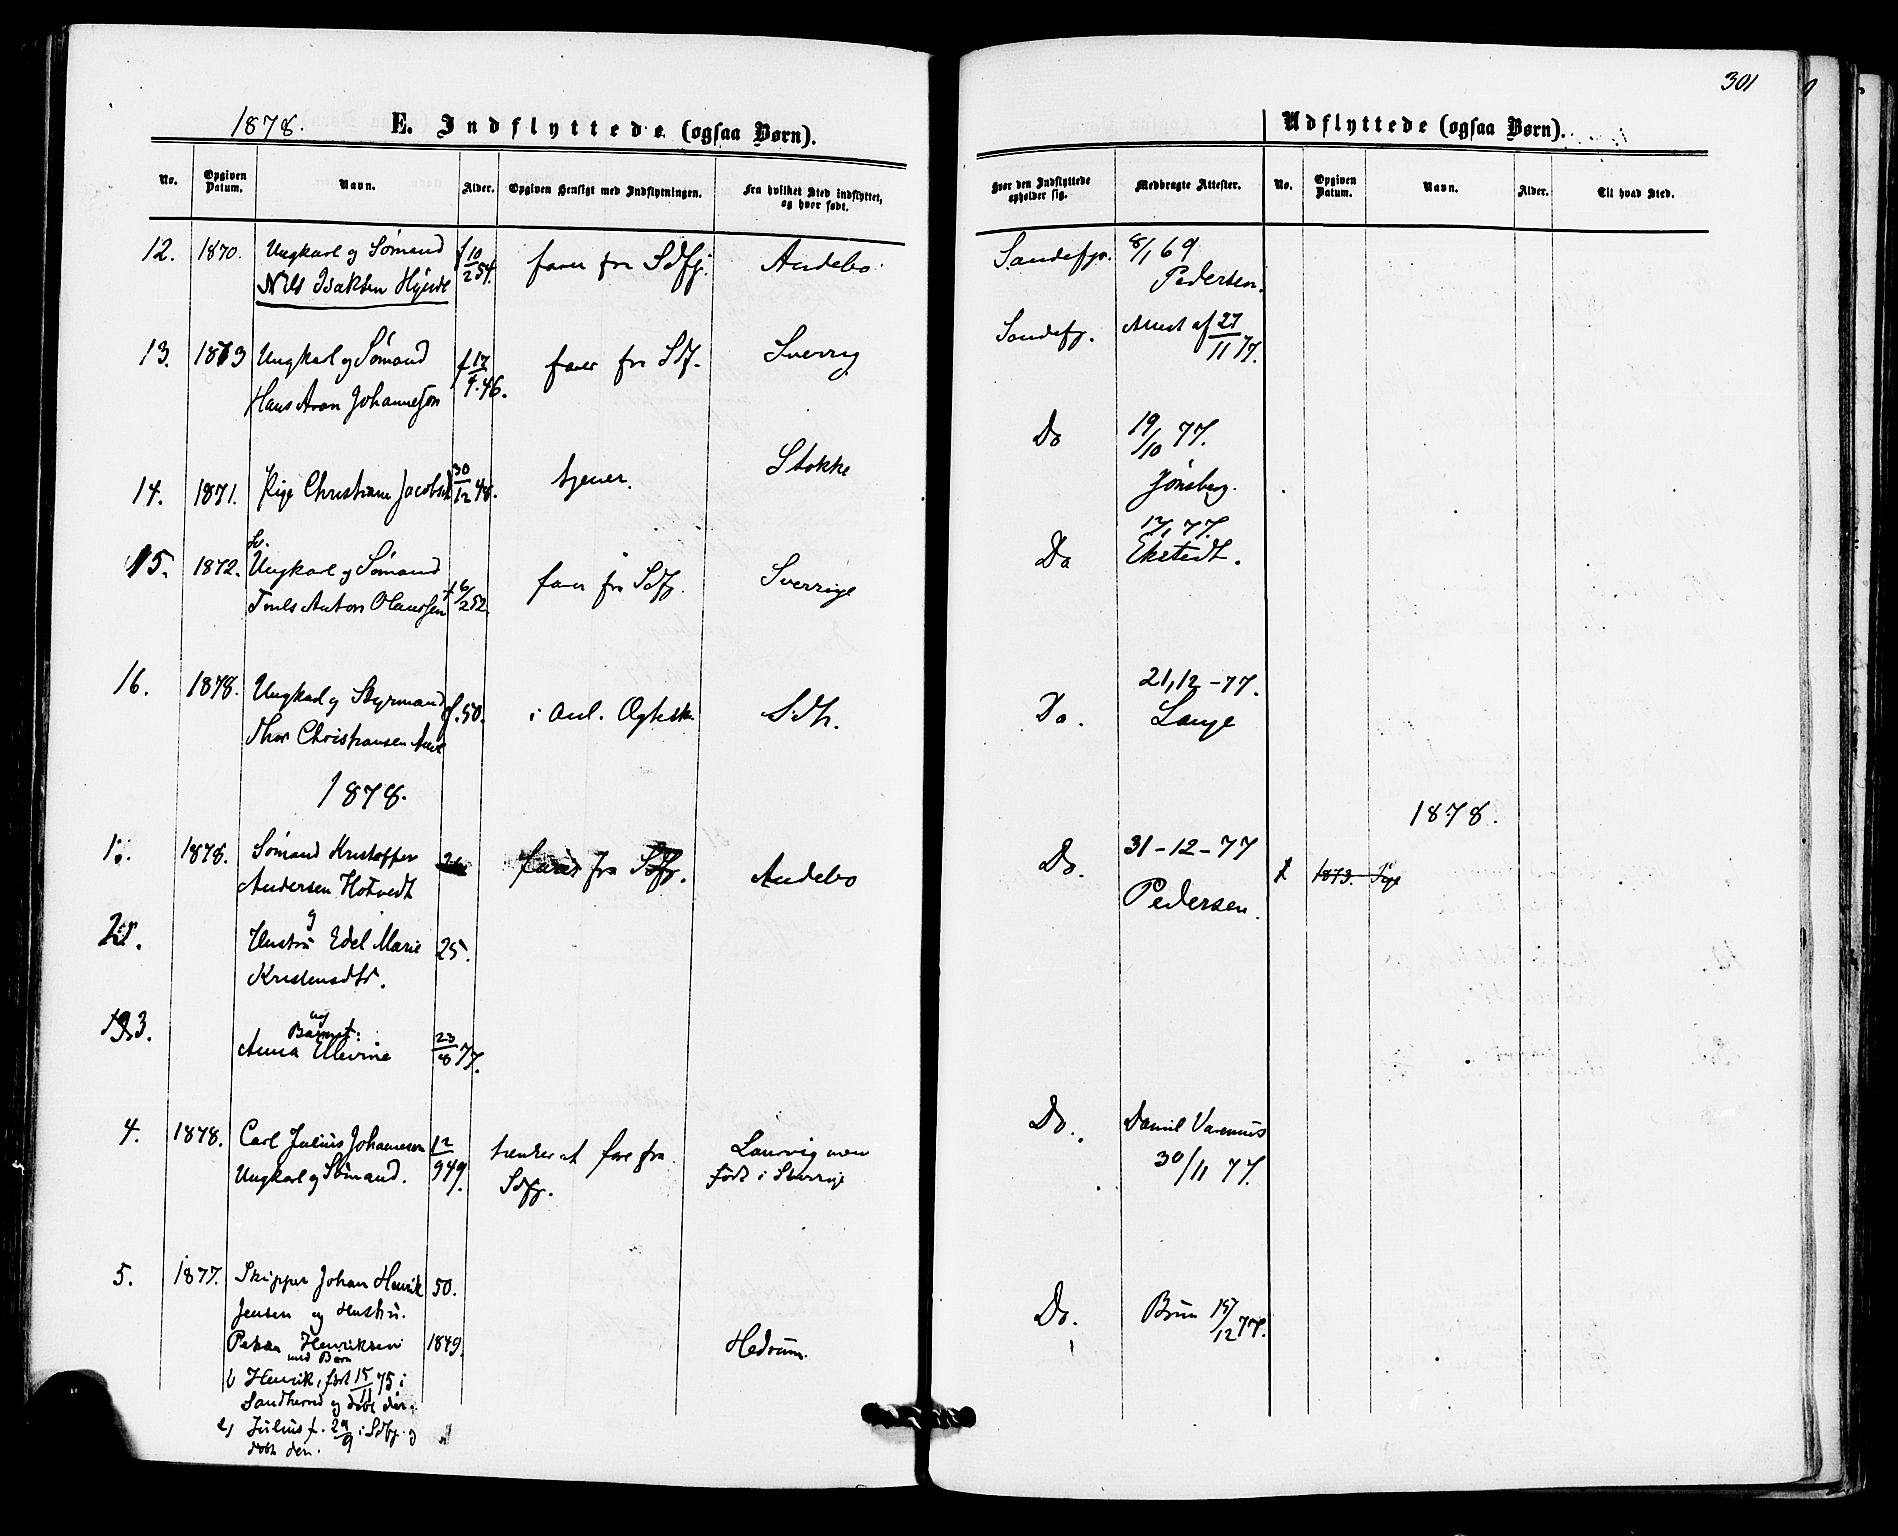 301
1878. E. Indflyttede (ogsaa Børn).
Udflyttede (ogsaa Børn).
No. Opgiven Datum. Navn. Alder. Opgiven Hensigt med Indflytningen. Fra hvilket Sted indflyttet, og hvor født. Hvor den Indflyttede opholder sig. Medbragte Attester. No. Opgiven Datum. Navn. Alder. Til hvad Sted.
12. 1870. Ungkarl og Sømand f 10/2 54. farer fra Sdfj. Andebo. Sandefj. 8/1 69
Nils Isaksen Pedersen.
13. 1873 Ungkarl og Sømand f 17/9. 46. farer fra Sdf. Sverrig Sandefj. Attest af 27/11 77.
Hans Aron Johannesson
14. 1871. Pige Christiane Jacobs 30/12 48. tjener. Stokke Do 19/10 77.
Jønsberg.
15. 1872. Ungkarl og Sømand f 6/2 52. farer fra Sdfj. Sverrige Do 77.
Anton Olaussen Ekstedt.
16. 1878. Ungkarl og Styrmand f. 50. i Anl. Ægtesk. Sdh. Do. 21,12-77.
Thor Christiansen Lange
1878.
1878.
1. 1878. Sømand Kristoffer farer fra Sdfj. Andebo Do. 31-12-77
Andersen Hotvedt Pedersen.
1 1873. Pige
og
2. Hustru Edel Marie 25.
Kristensdtr.
og
3. Barnet:
Anna Elevine 23/8 77.
4. 1878. Carl Julius Johannesen 12/9 49. tænker at fare fra Laurvig men Do. Daniel Varenius
Ungkarl og Sømand. Sdfj. født i Sverrige 30/11 77.
5. 1877. Skipper Johan Henrik 50. Do. Brun 15/12 77.
Jensen og Hustru.
Henriksen 1849. Hedrum.
med Børn
1) Henrik, født 15/11 75 i
Sandherred og døbt der.
2) Julius f. 29/9 i Sdfj. og
døbt der.